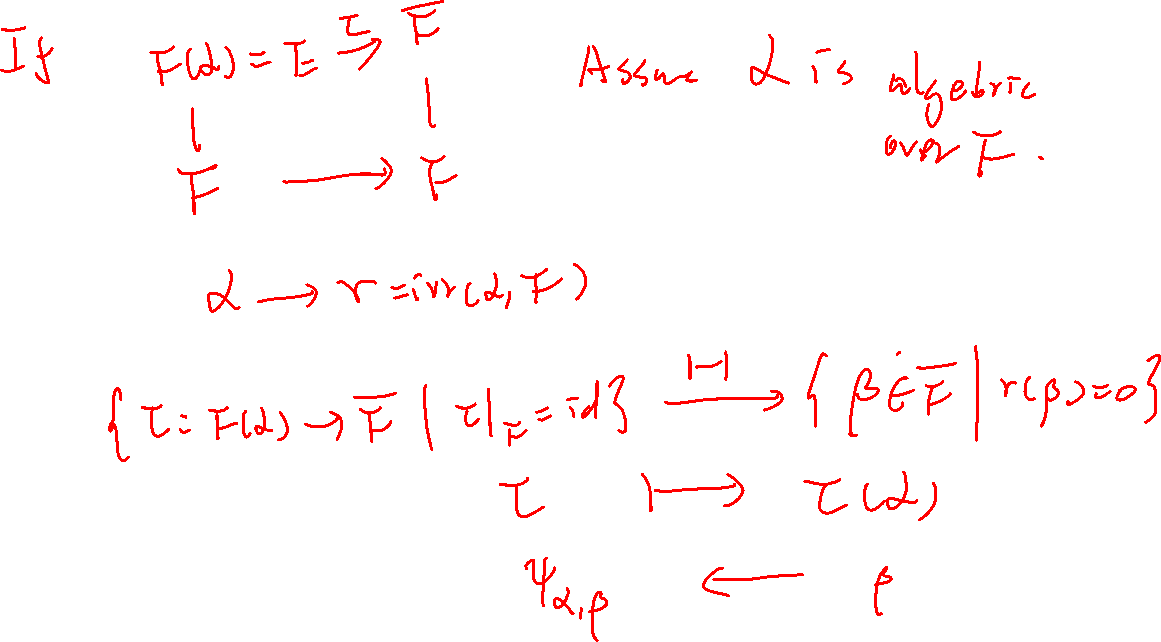 If F(α) = E →^τ F̄ Assume α is algebric
| | over F.
F → F
α → r = irr(α, F)
{ τ: F(α) → F̄ | τ|_F = id } →^{1-1} { β ∈ F̄ | r(β) = 0 }
τ ↦ τ(α)
ψ_{α,β} ← β